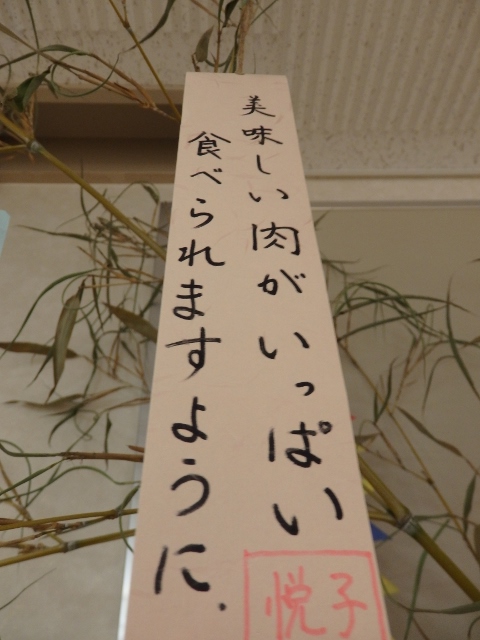 美味しい肉がいっぱい
食べられますように.
悦子